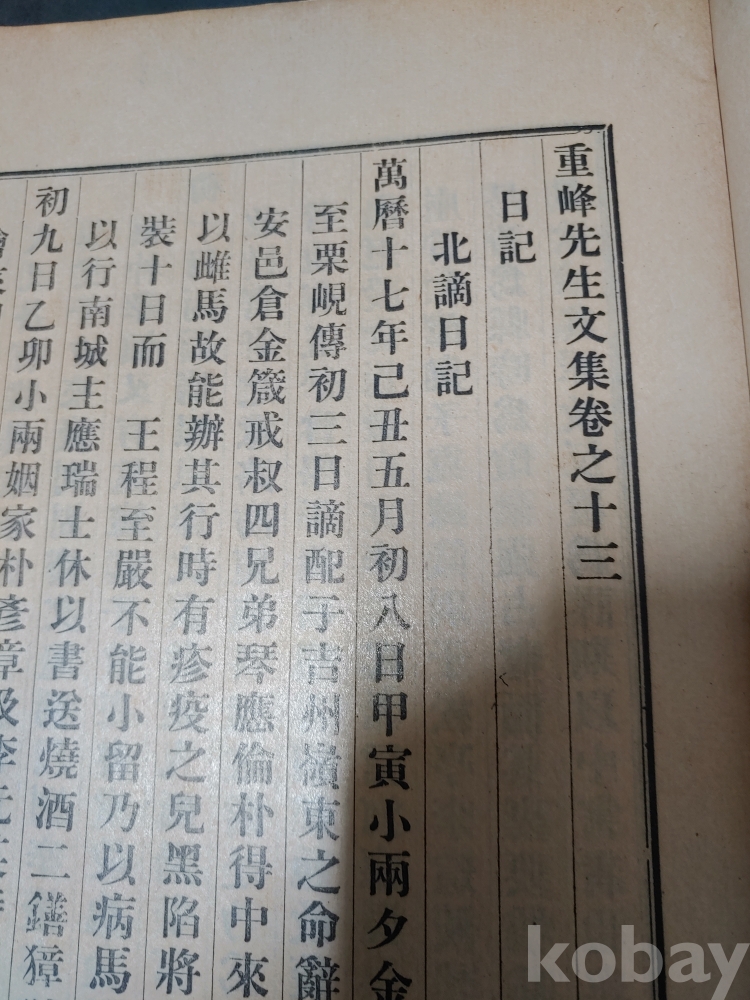 重峰先生文集卷之十三
日記
北謫日記
萬曆十七年己丑五月初八日甲寅小兩夕金
至栗峴傳初三日謫配于吉州嶺東之命辭
安邑倉金箴戒叔四兄弟琴應倫朴得中來
以雌馬故能辦其行時有疹疫之兒黑陷將
裝十日而 王程至嚴不能小留乃以病馬
以行南城主應瑞士休以書送燒酒二鐥獐
初九日乙卯小兩姻家朴彥章及李
kobay